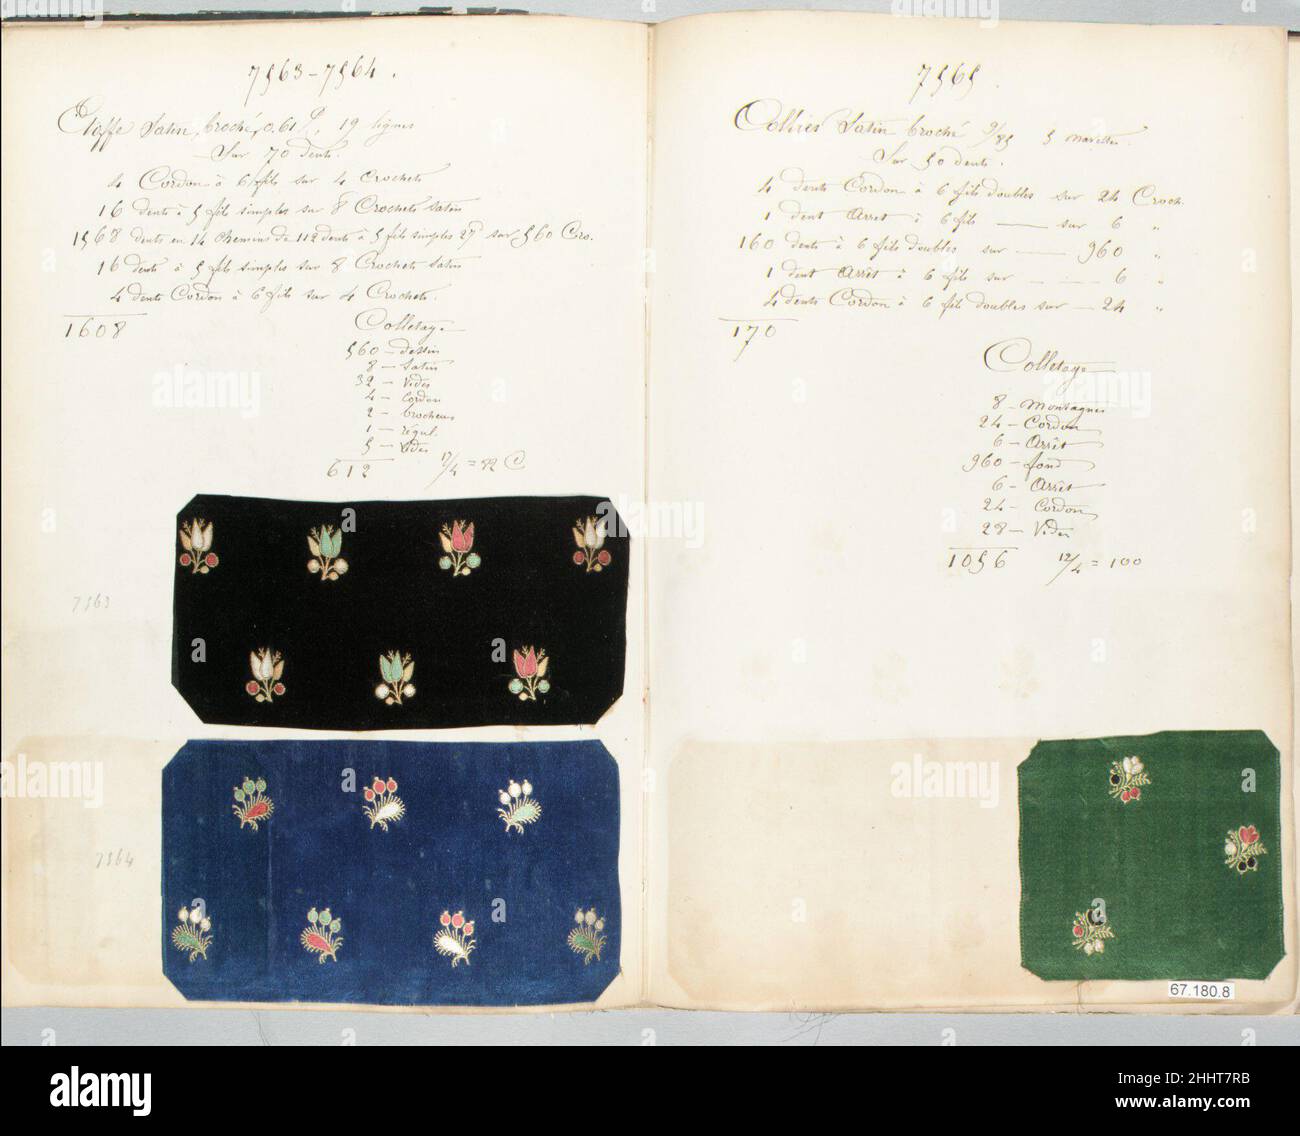 7563-7564.
Etoffe Satin, broché, 0.61 P, 19 lignes
Sur 70 dents.
4 Cordon à 6 fils sur 4 Crochets
16 dents à 5 fils simples sur 8 Crochets satin
1568 dents en 14 chemins de 112 dents à 5 fils simples sur 560 Cro.
16 dents à 5 fils simples sur 8 Crochets satin
4 dents Cordon à 6 fils sur 4 Crochets.
1608
Colletage
560 - dessin
8 - satin
32 - vides
4 - cordon
2 - brocheurs
1 - régul.
5 - vides
612 17/4 = 82 C
7563
7564
7565.
Colliers Satin broché 9/85 5 navettes.
Sur 50 dents.
4 dents Cordon à 6 fils doubles sur 24 Croch.
1 dent Arrêt à 6 fils — sur 6 "
160 dents à 6 fils doubles sur — 960 "
1 dent Arrêt à 6 fils sur — 6 "
4 dents Cordon à 6 fils doubles sur — 24 "
170
Colletage
8 - Montagnes
24 - Cordon
6 - Arrêt
960 - fond
6 - Arrêt
24 - Cordon
28 - Vides
1056 12/4 = 100
67.180.8
alamy
Image ID: 2HHT7RB
www.alamy.com